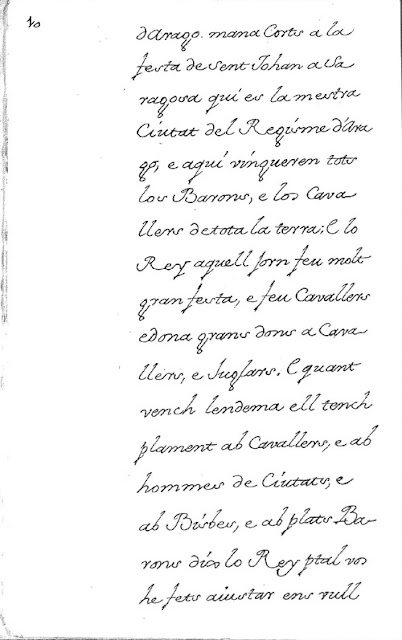 10
dArago. mana Corts a la
festa de Sent Johan a Sa
ragosa qui es la mestra
Ciutat del Regisme d'Ara
go, e aqui vinqueren tots
los Barons, e los Cava
llers de tota la terra; E lo
Rey aquell jorn feu molt
gran festa, e feu Cavallers
e dona grans dons a Cava-
llers, e Juglars. E quant
vench lendema ell tench
plament ab Cavallers, e ab
hommes de Ciutats, e
ab Bisbes, e ab plats Ba-
rons dix lo Rey ptal vos
he fets aiustar ens vull